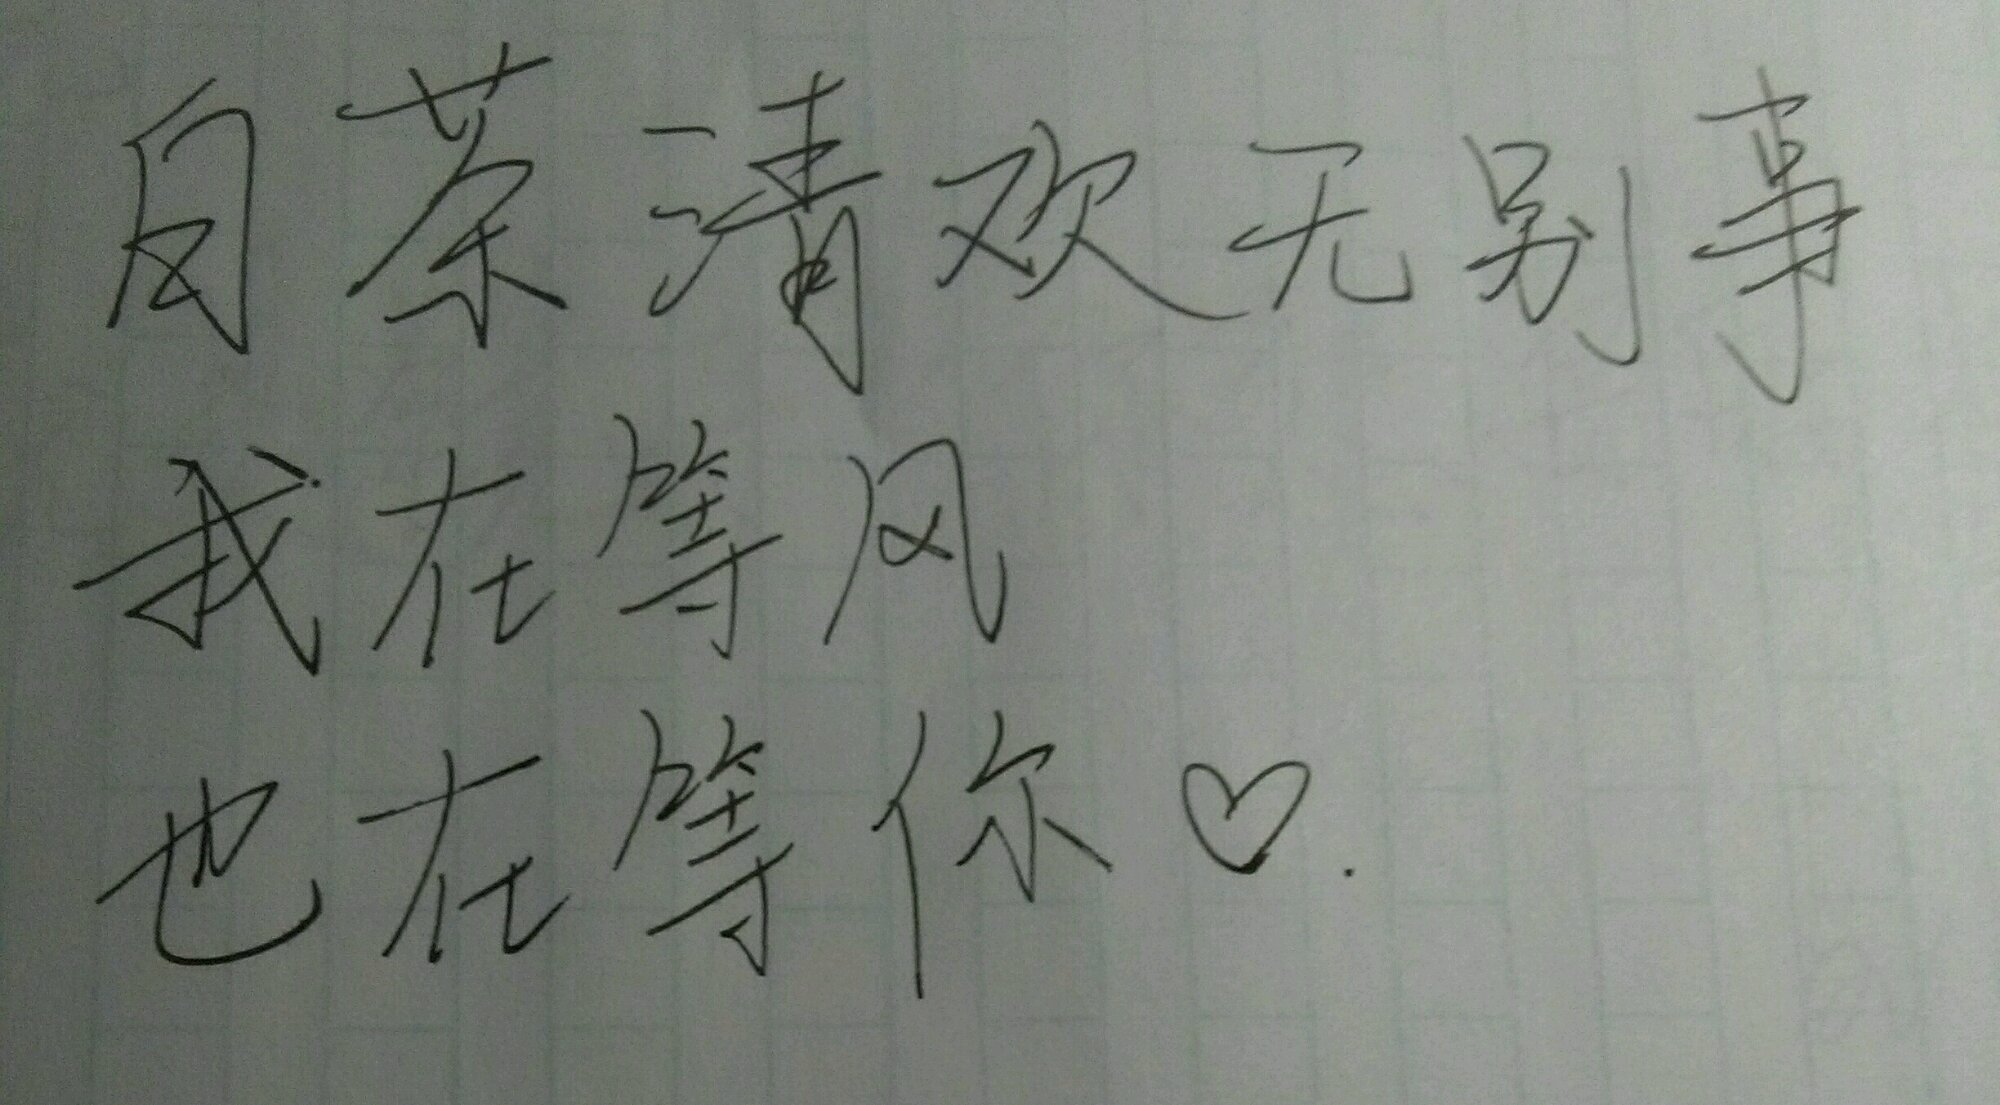 白茶清欢无别事
我在等风
也在等你♡.